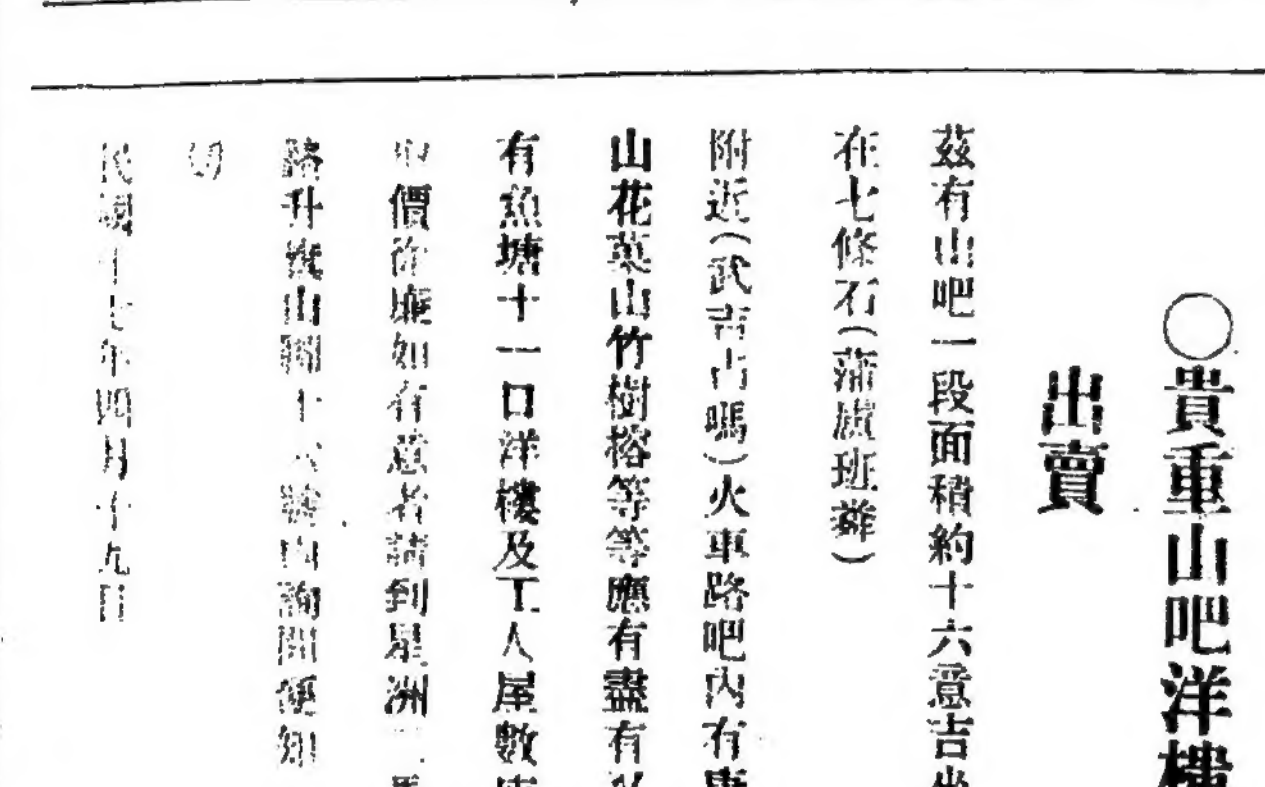 〇貴重山吧洋樓
出賣
茲有山吧一段面積約十六意吉坐
在七條石(蒲 班 )
附近(武吉古嗎)火車路吧內有
山花菜山竹樹榕等等應有盡有又
有魚塘十一口洋樓及工人屋數
價 如有意者請到星洲二馬
路升旗山 十六號內詢問便知
民國十七年四月十九日